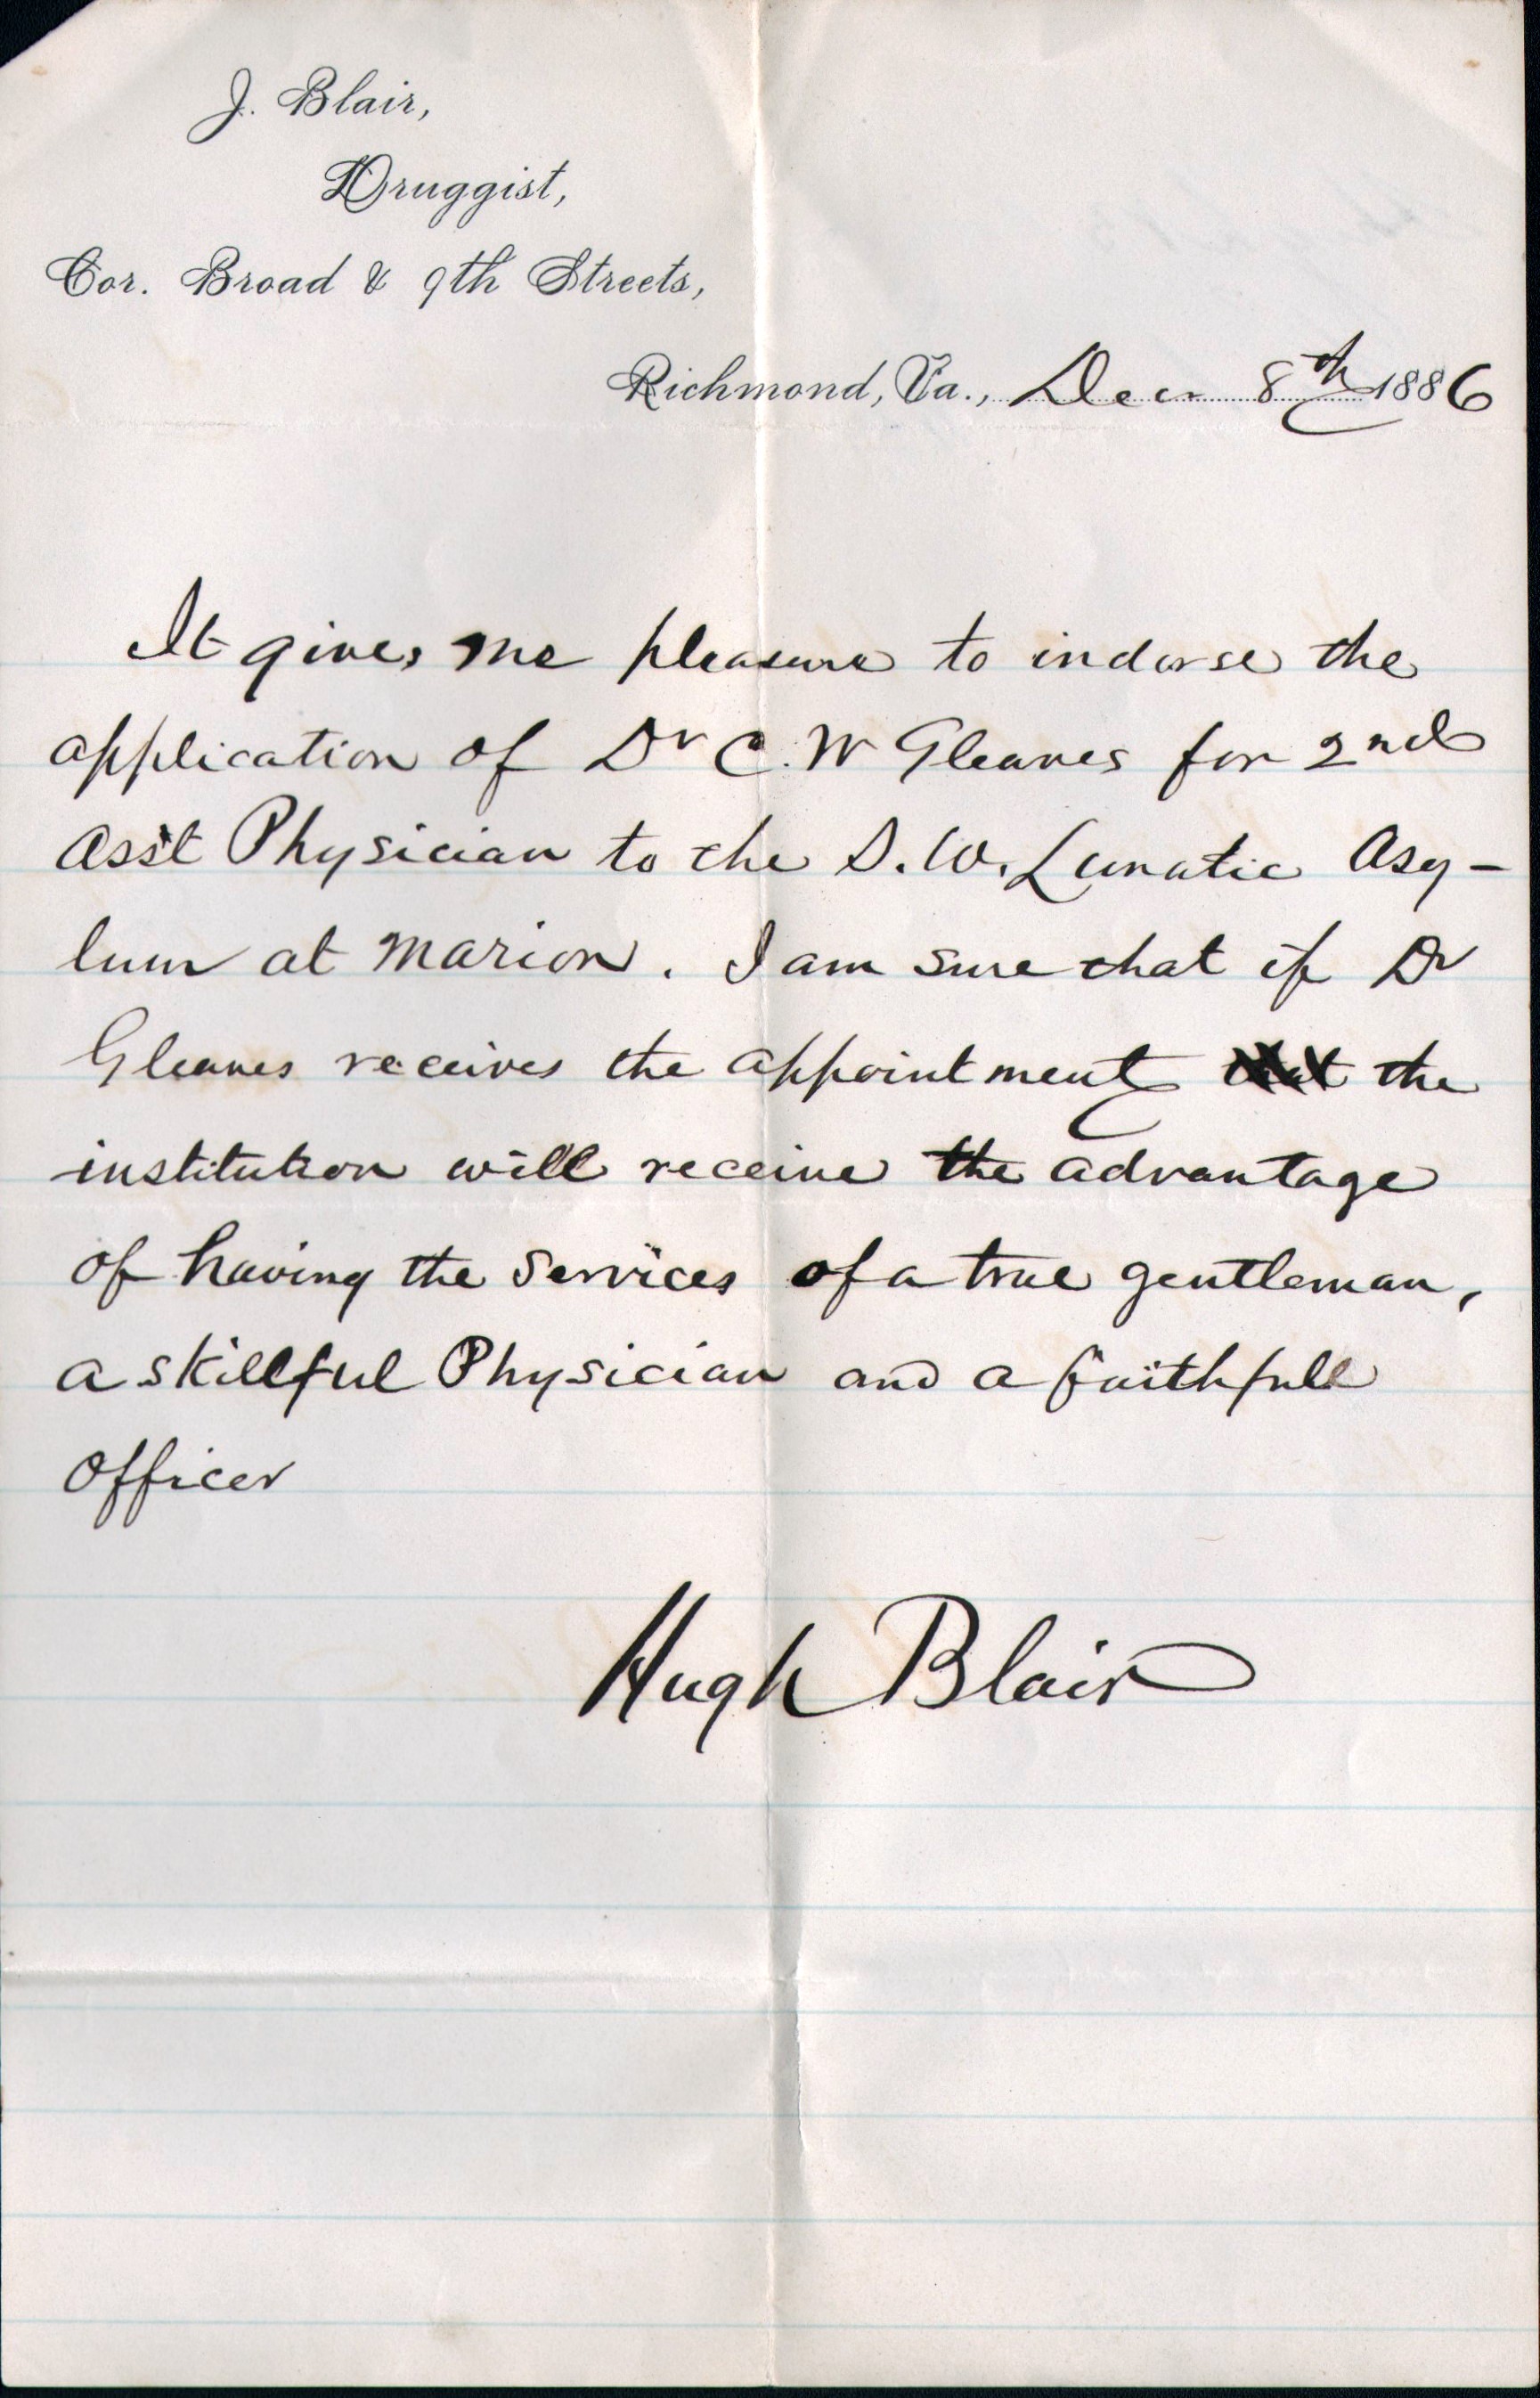 J. Blair,
Druggist,
Cor. Broad & 9th Streets,
Richmond, Va., Decr 8th 1886
It gives me pleasure to indorse the
application of Dr C. W Gleaves for 2nd
Asst Physician to the S. W. Lunatic Asy-
lum at Marion. I am sure that if Dr
Gleaves receives the appointment that the
institution will receive the advantage
of having the services of a true gentleman,
a skillful Physician and a faithfull
Officer
Hugh Blair